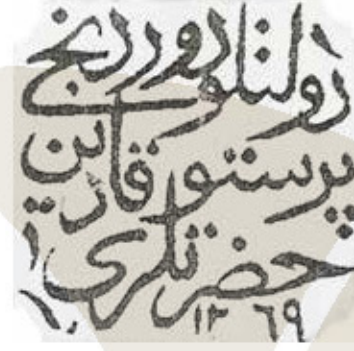 دولتلو دوردنجی
پرستو قادین
حضرتلری
١٢٦٩